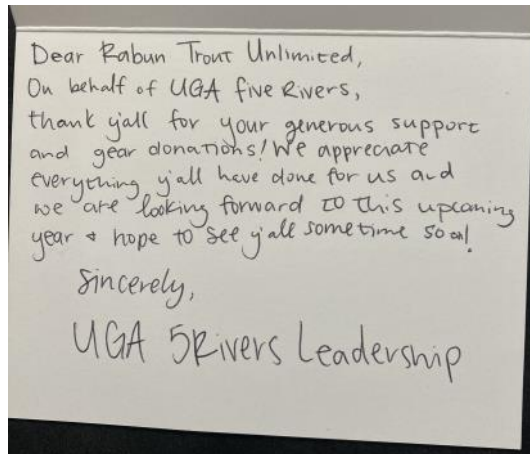 Dear Rabun Trout Unlimited,
On behalf of UGA five Rivers,
thank y'all for your generous support
and gear donations! We appreciate
everything y'all have done for us and
we are looking forward to this upcoming
year + hope to see y'all sometime soon!
Sincerely,
UGA 5Rivers Leadership